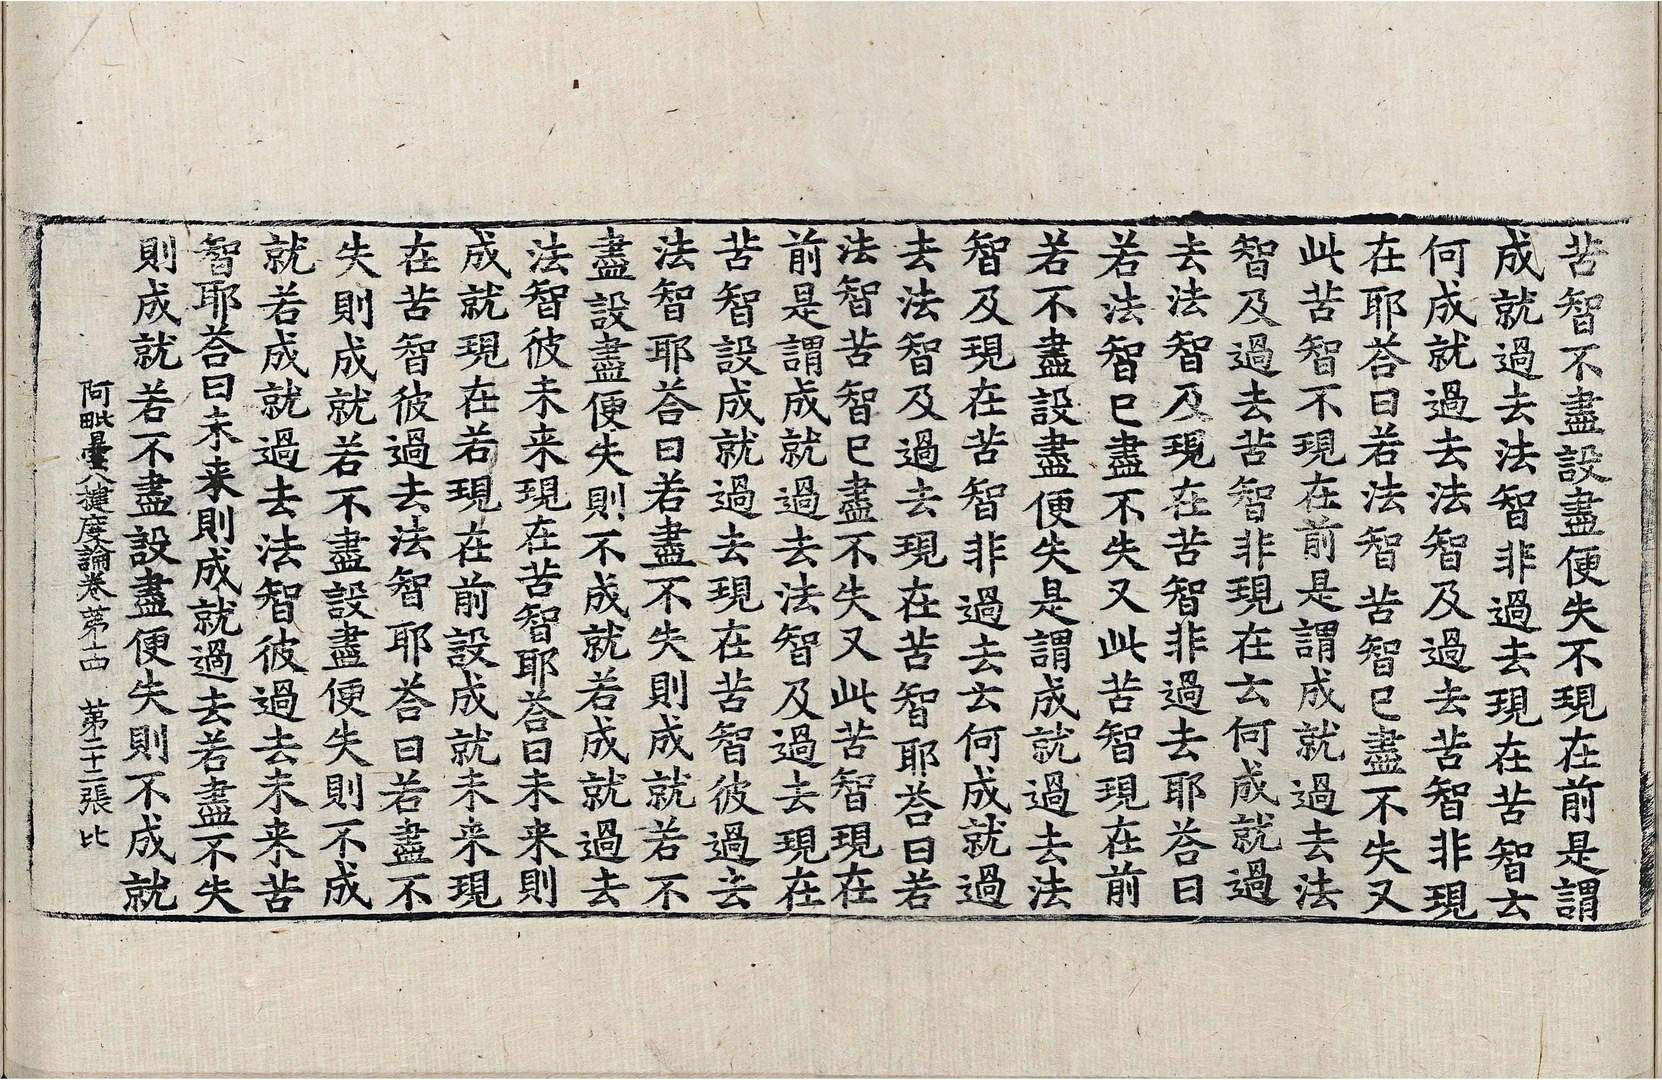 苦智不盡設盡便失不現在前是謂
成就過去法智非過去現在苦智云
何成就過去法智及過去苦智非現
在耶荅曰若法智苦智已盡不失又
此苦智不現在前是謂成就過去法
智及過去苦智非現在云何成就過
去法智及現在苦智非過去耶荅曰
若法智已盡不失又此苦智現在前
若不盡設盡便失是謂成就過去法
智及現在苦智非過去云何成就過
去法智及過去現在苦智耶荅曰若
法智苦智已盡不失又此苦智現在
前是謂成就過去法智及過去現在
苦智設成就過去現在苦智彼過去
法智耶荅曰若盡不失則成就若不
盡設盡便失則不成就若成就過去
法智彼未来現在苦智耶荅曰未来則
成就現在若現在前設成就未来現
在苦智彼過去法智耶荅曰若盡不
失則成就若不盡設盡便失則不成
就若成就過去法智彼過去未来苦
智耶荅曰未来則成就過去若盡不失
則成就若不盡設盡便失則不成就
阿毗曇八揵度論卷第十四　第二十二張　比